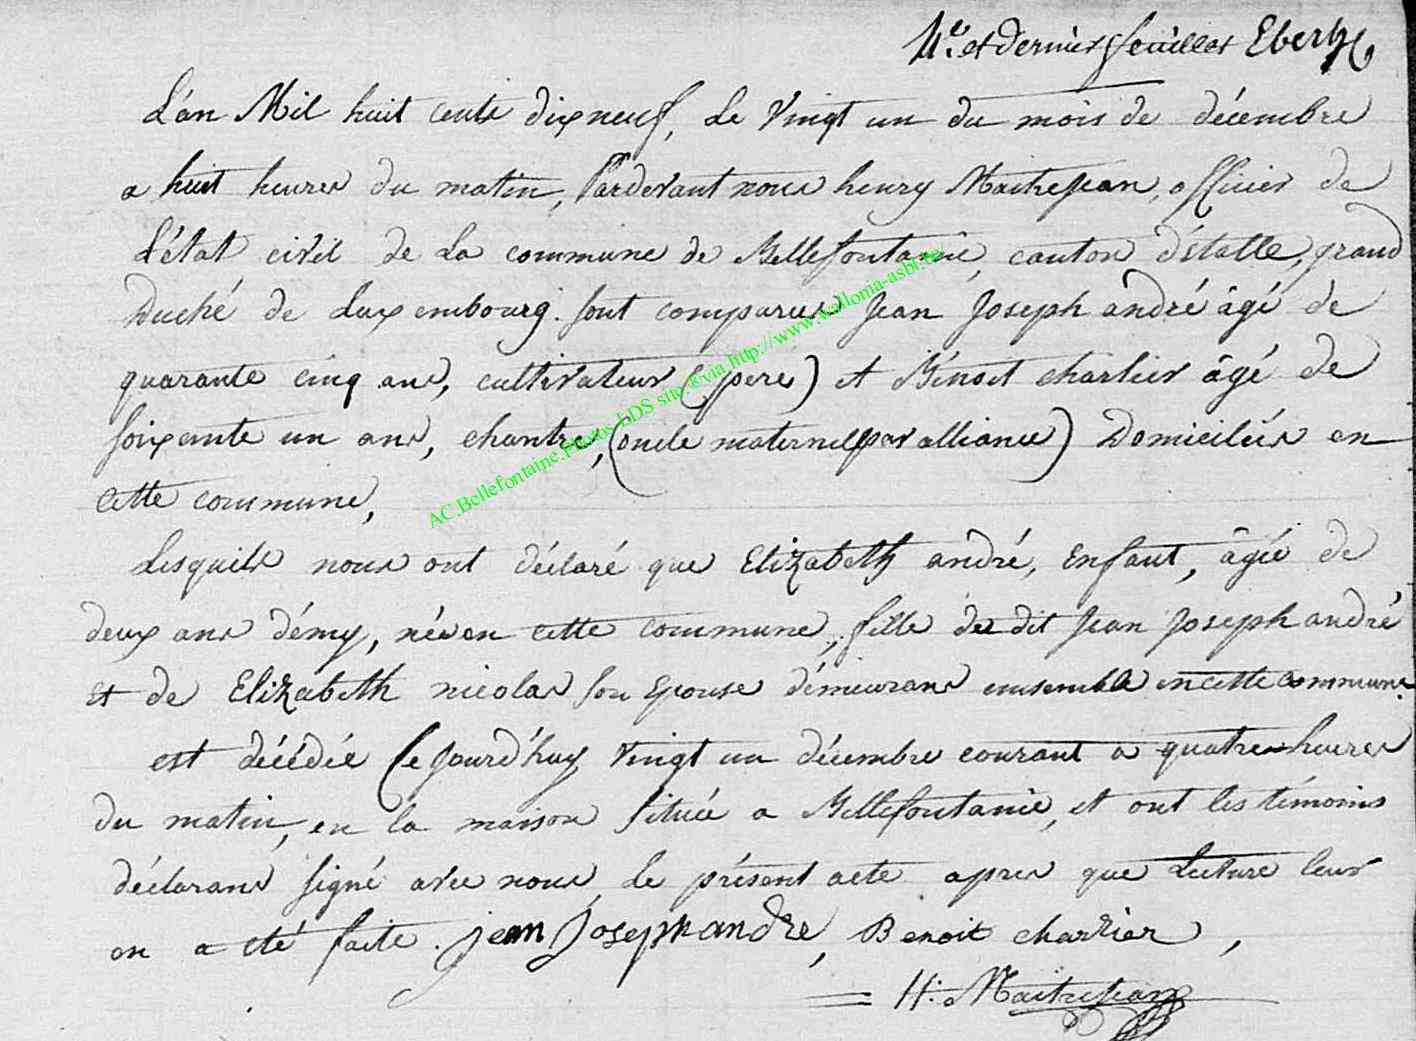 4.e et dernier feuillet Ebertz
L'an Mil huit cents dixneuf, Le Vingt un du mois de décembre
a huit heures du matin, Pardevant nous henry Maitrejean, officier de
L'état civil de La commune de Bellefontaine, canton d'étalle, grand
Duché de Luxembourg. sont comparus Jean Joseph andré âgé de
quarante cinq ans, cultivateur (père) et Bénoit charlier âgé de
soixante un ans, chantre, (oncle maternel par alliance) Domiciliés en
cette commune,
Lesquels nous ont déclaré que Elizabeth andré, Enfant, âgée de
deux ans démy, née en cette commune, fille de dit Jean Joseph andré
et de Elizabeth nicolas son Epouse démeurans ensemble en cette commune.
est décédée Cejourd'huy Vingt un décembre courant a quatre heures
du matin, en la maison située a Bellefontaine, et ont les témoins
déclarans signé avec nous Le présent acte apres que Lecture leur
en a été faite. jean Joseph andre, Benoit charlier,
H: Maitrejean
AC.Bellefontaine.Photos LDS site ® via http://www.wallonia-asbl.be/